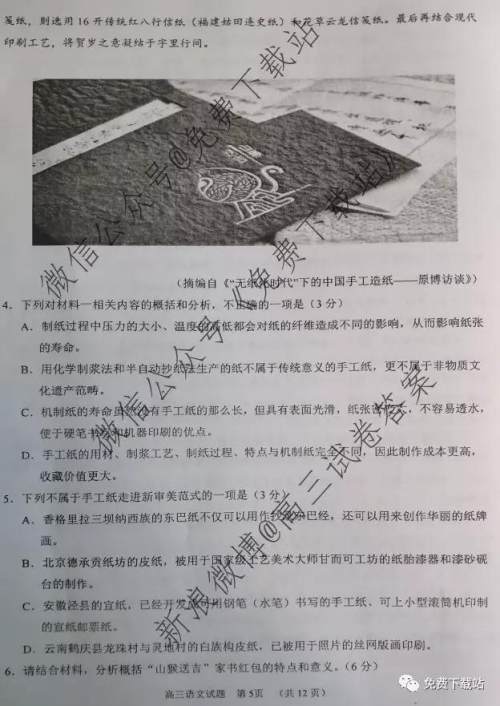 笺纸，则选用16开传统红八行信纸（福建姑田连史纸）和花草云龙信笺纸。最后再结合现代
印刷工艺，将贺岁之意凝结于字里行间。
（摘编自《“无纸化时代”下的中国手工造纸——原博访谈》）
4．下列对材料一相关内容的概括和分析，不正确的一项是（3分）
A．制纸过程中压力的大小、温度的高低都会对纸的纤维造成不同的影响，从而影响纸张
的寿命。
B．用化学制浆法和半自动抄纸法生产的纸不属于传统意义的手工纸，更不属于非物质文
化遗产范畴。
C．机制纸的寿命虽然没有手工纸的那么长，但具有表面光滑，纸张不容易透水，
便于硬笔书写及机器印刷的优点。
D．手工纸的用材、制浆工艺、制纸过程、特点与机制纸完全不同，因此制作成本更高，
收藏价值更大。
5．下列不属于手工纸走进新审美范式的一项是（3分）
A．香格里拉三坝纳西族的东巴纸不仅可以用作经，还可以用来创作华丽的纸牌
画。
B．北京德承贡纸坊的皮纸，被用于国家级工艺美术大师甘而可工坊的纸胎漆器和漆砂砚
台的制作。
C．安徽泾县的宣纸，已经开发成可用钢笔（水笔）书写的手工纸、可上小型滚筒机印制
的宣纸邮票纸。
D．云南鹤庆县龙珠村与灵地村的白族构皮纸，已被用于照片的丝网版画印刷。
6．请结合材料，分析概括“山猴送吉”家书红包的特点和意义。（6分）
高三语文试题 第5页 （共12页）
微信公众号@免费下载站
微信公众号《免费下载站》
新浪微博@高三试卷答案
免费下载站